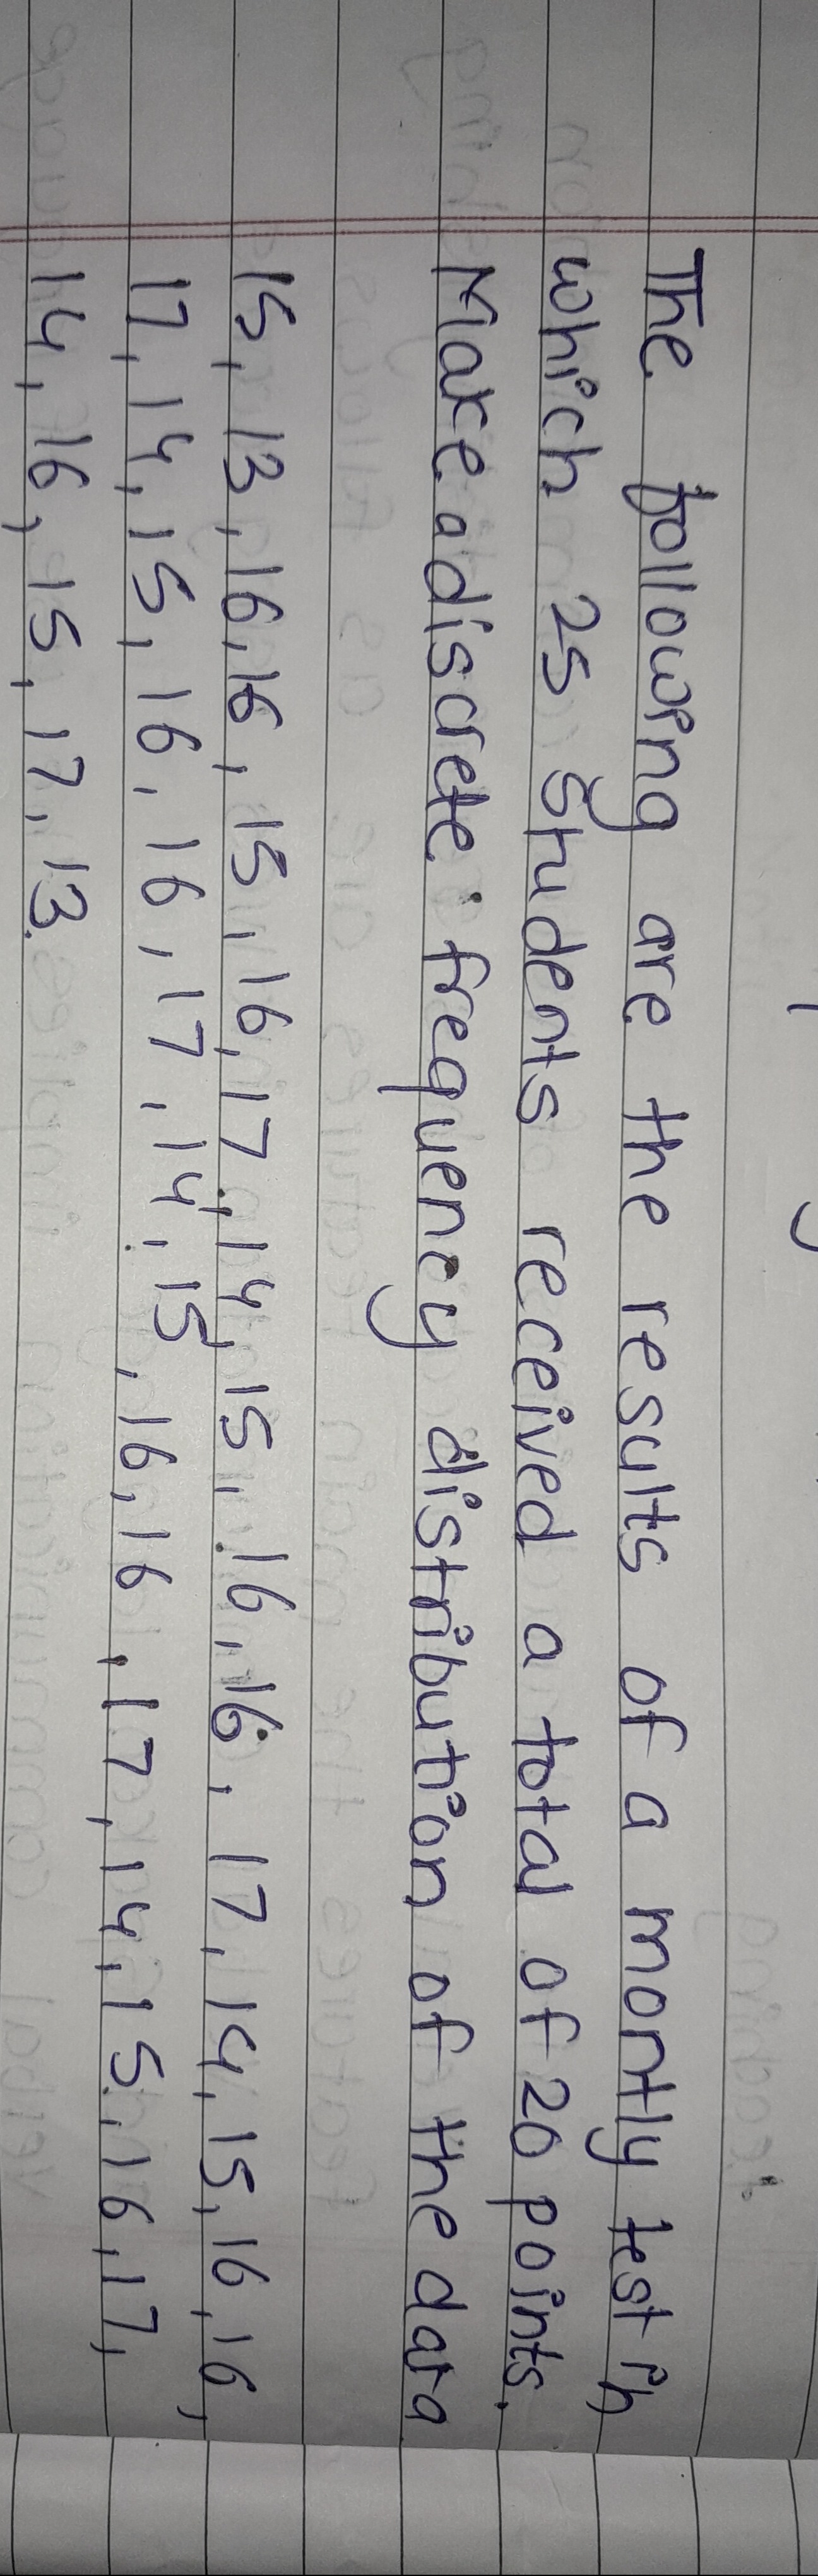 The following are the results of a montly test in
which 25 Students received a total of 20 points.
Make a discrete frequency distribution of the data
15, 13, 16, 16, 15, 16, 17, 14, 15, 16, 16, 17, 14, 15, 16, 16,
17, 14, 15, 16, 16, 17, 14, 15, 16, 16, 17, 14, 15, 16, 17,
14, 16, 15, 17, 13.